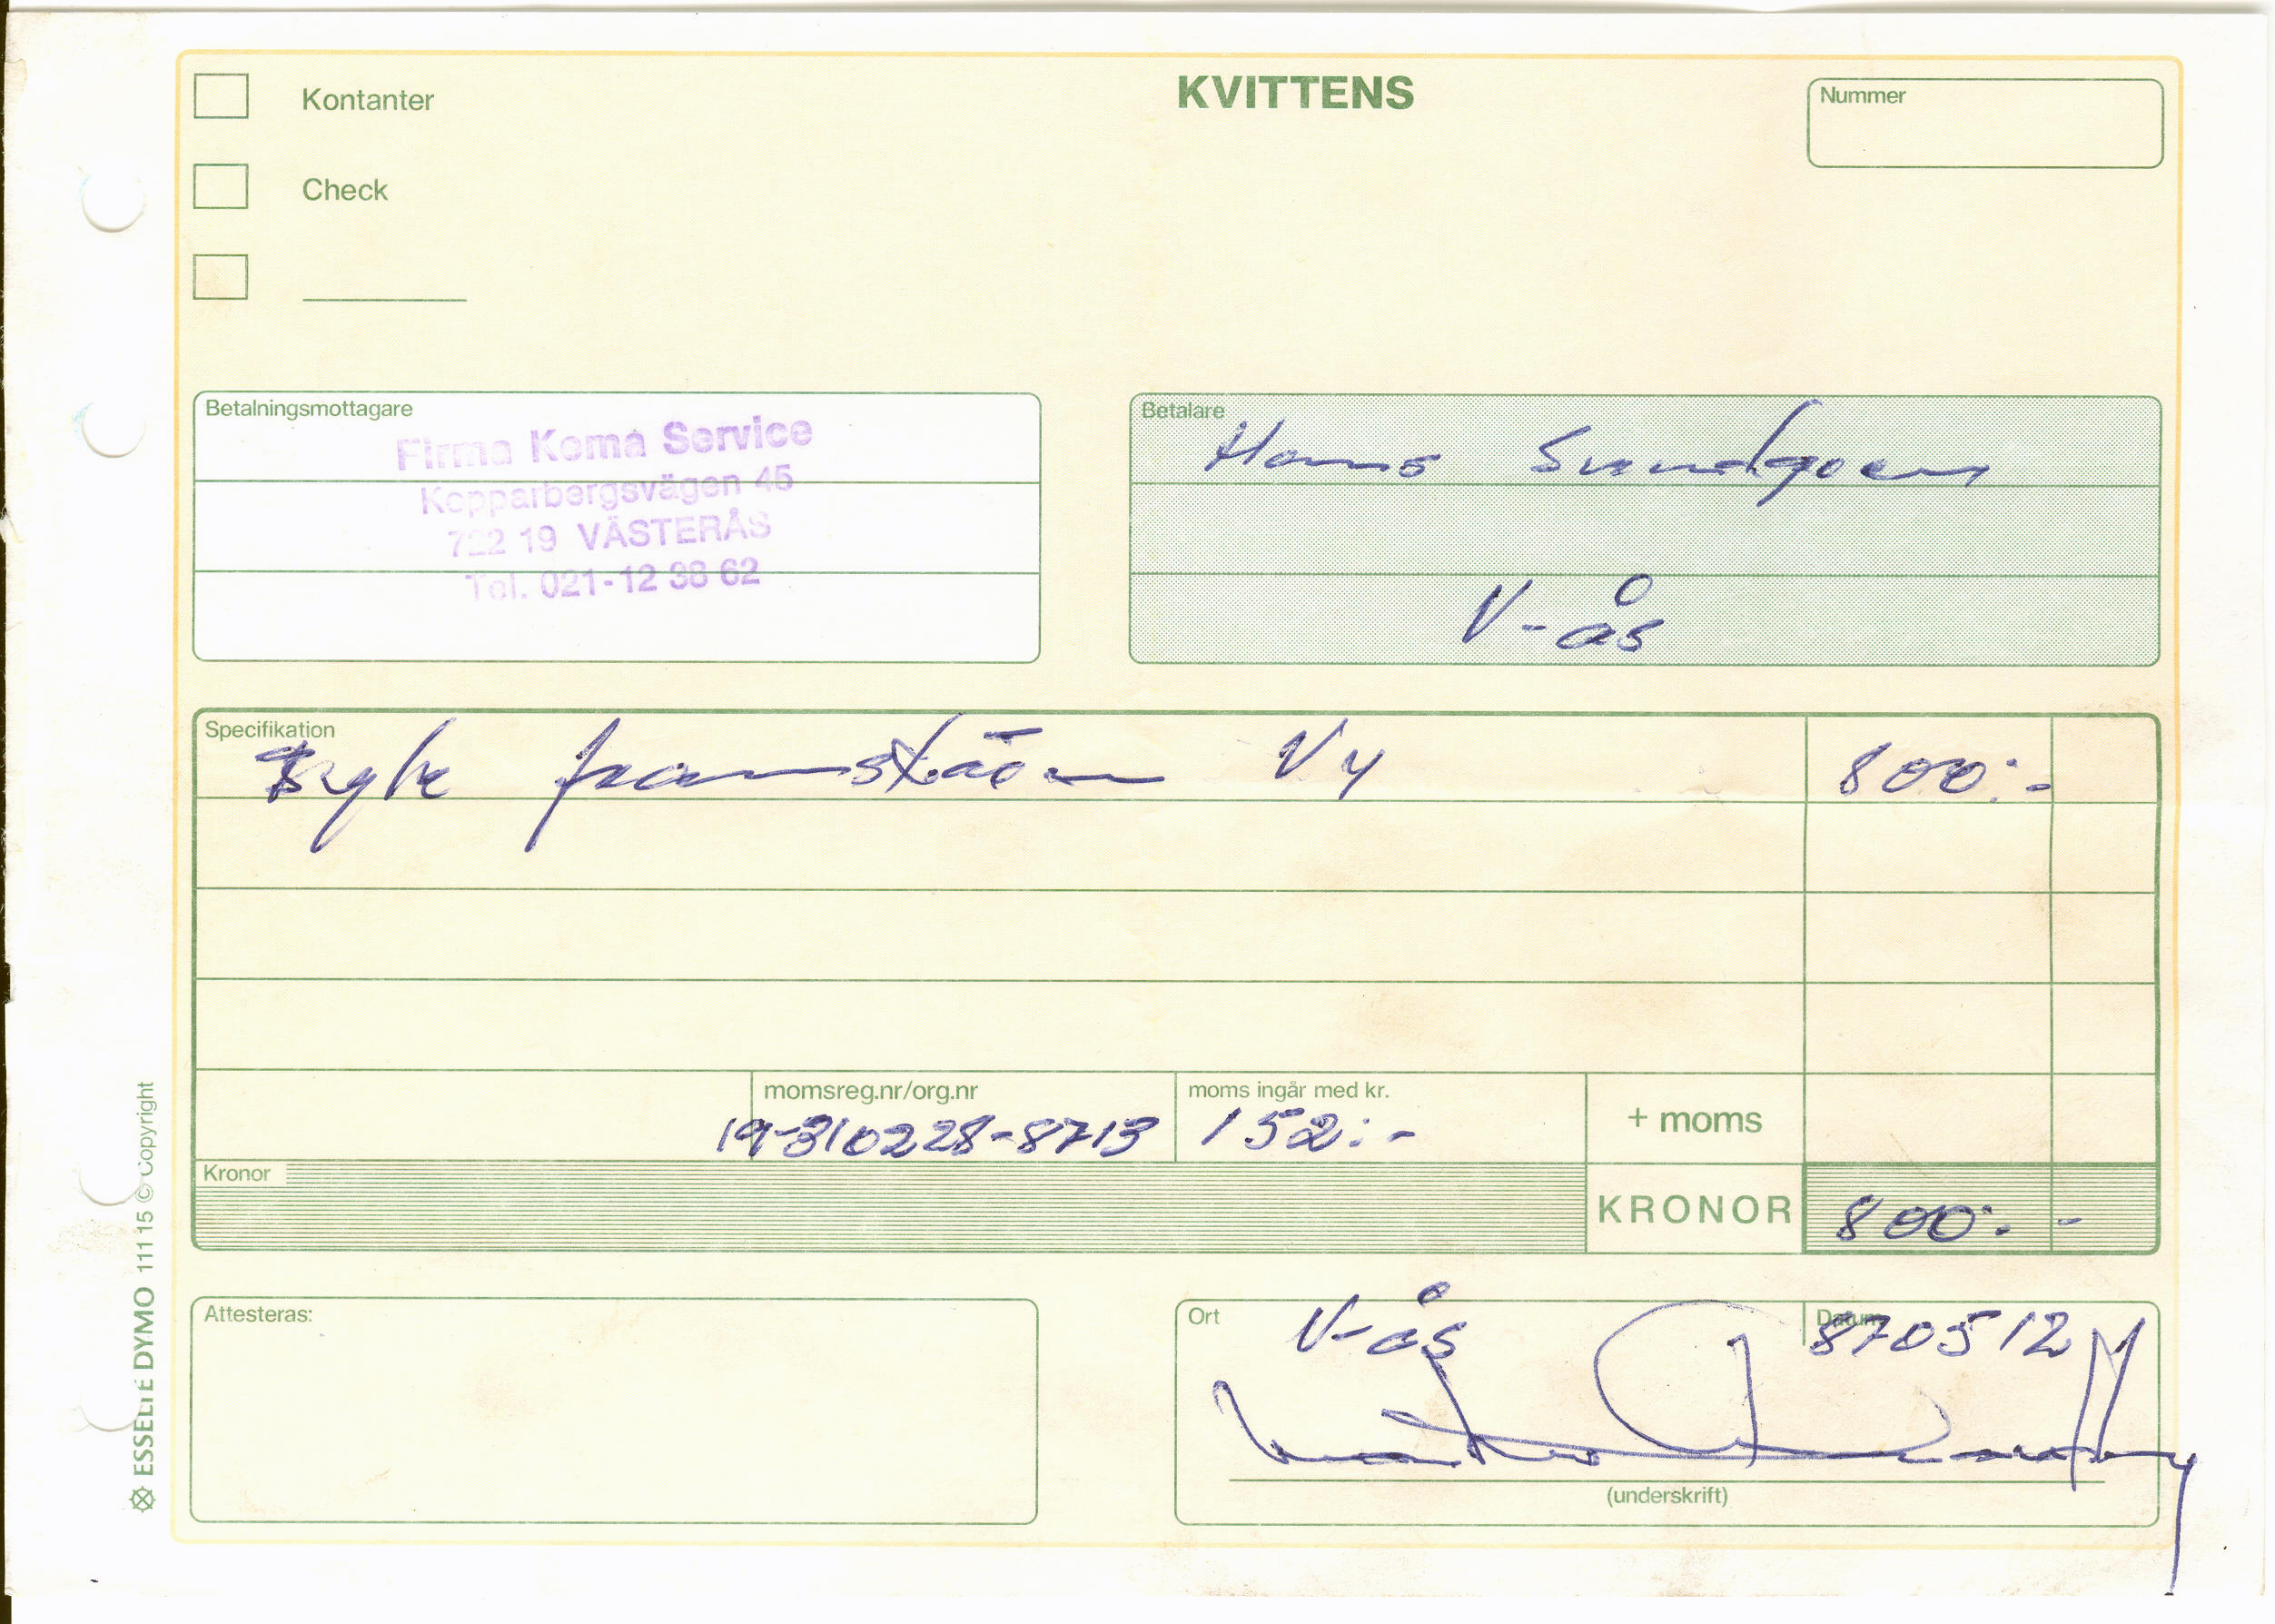 Kontanter
KVITTENS
Nummer
Check
Betalningsmottagare
Firma Koma Service
Kopparbergsvägen 45
722 19 VÄSTERÅS
Tel. 021-12 38 62
Betalare
Hans Sundgren
V-ås
Specifikation
Byte framskärm Vy 800:-
momsreg.nr/org.nr
19-310228-8713
moms ingår med kr.
152:-
+ moms
Kronor
KRONOR 800:-
Attesteras:
Ort
V-ås
Datum
870512
(underskrift)
ESSELTE DYMO 111 115 © Copyright